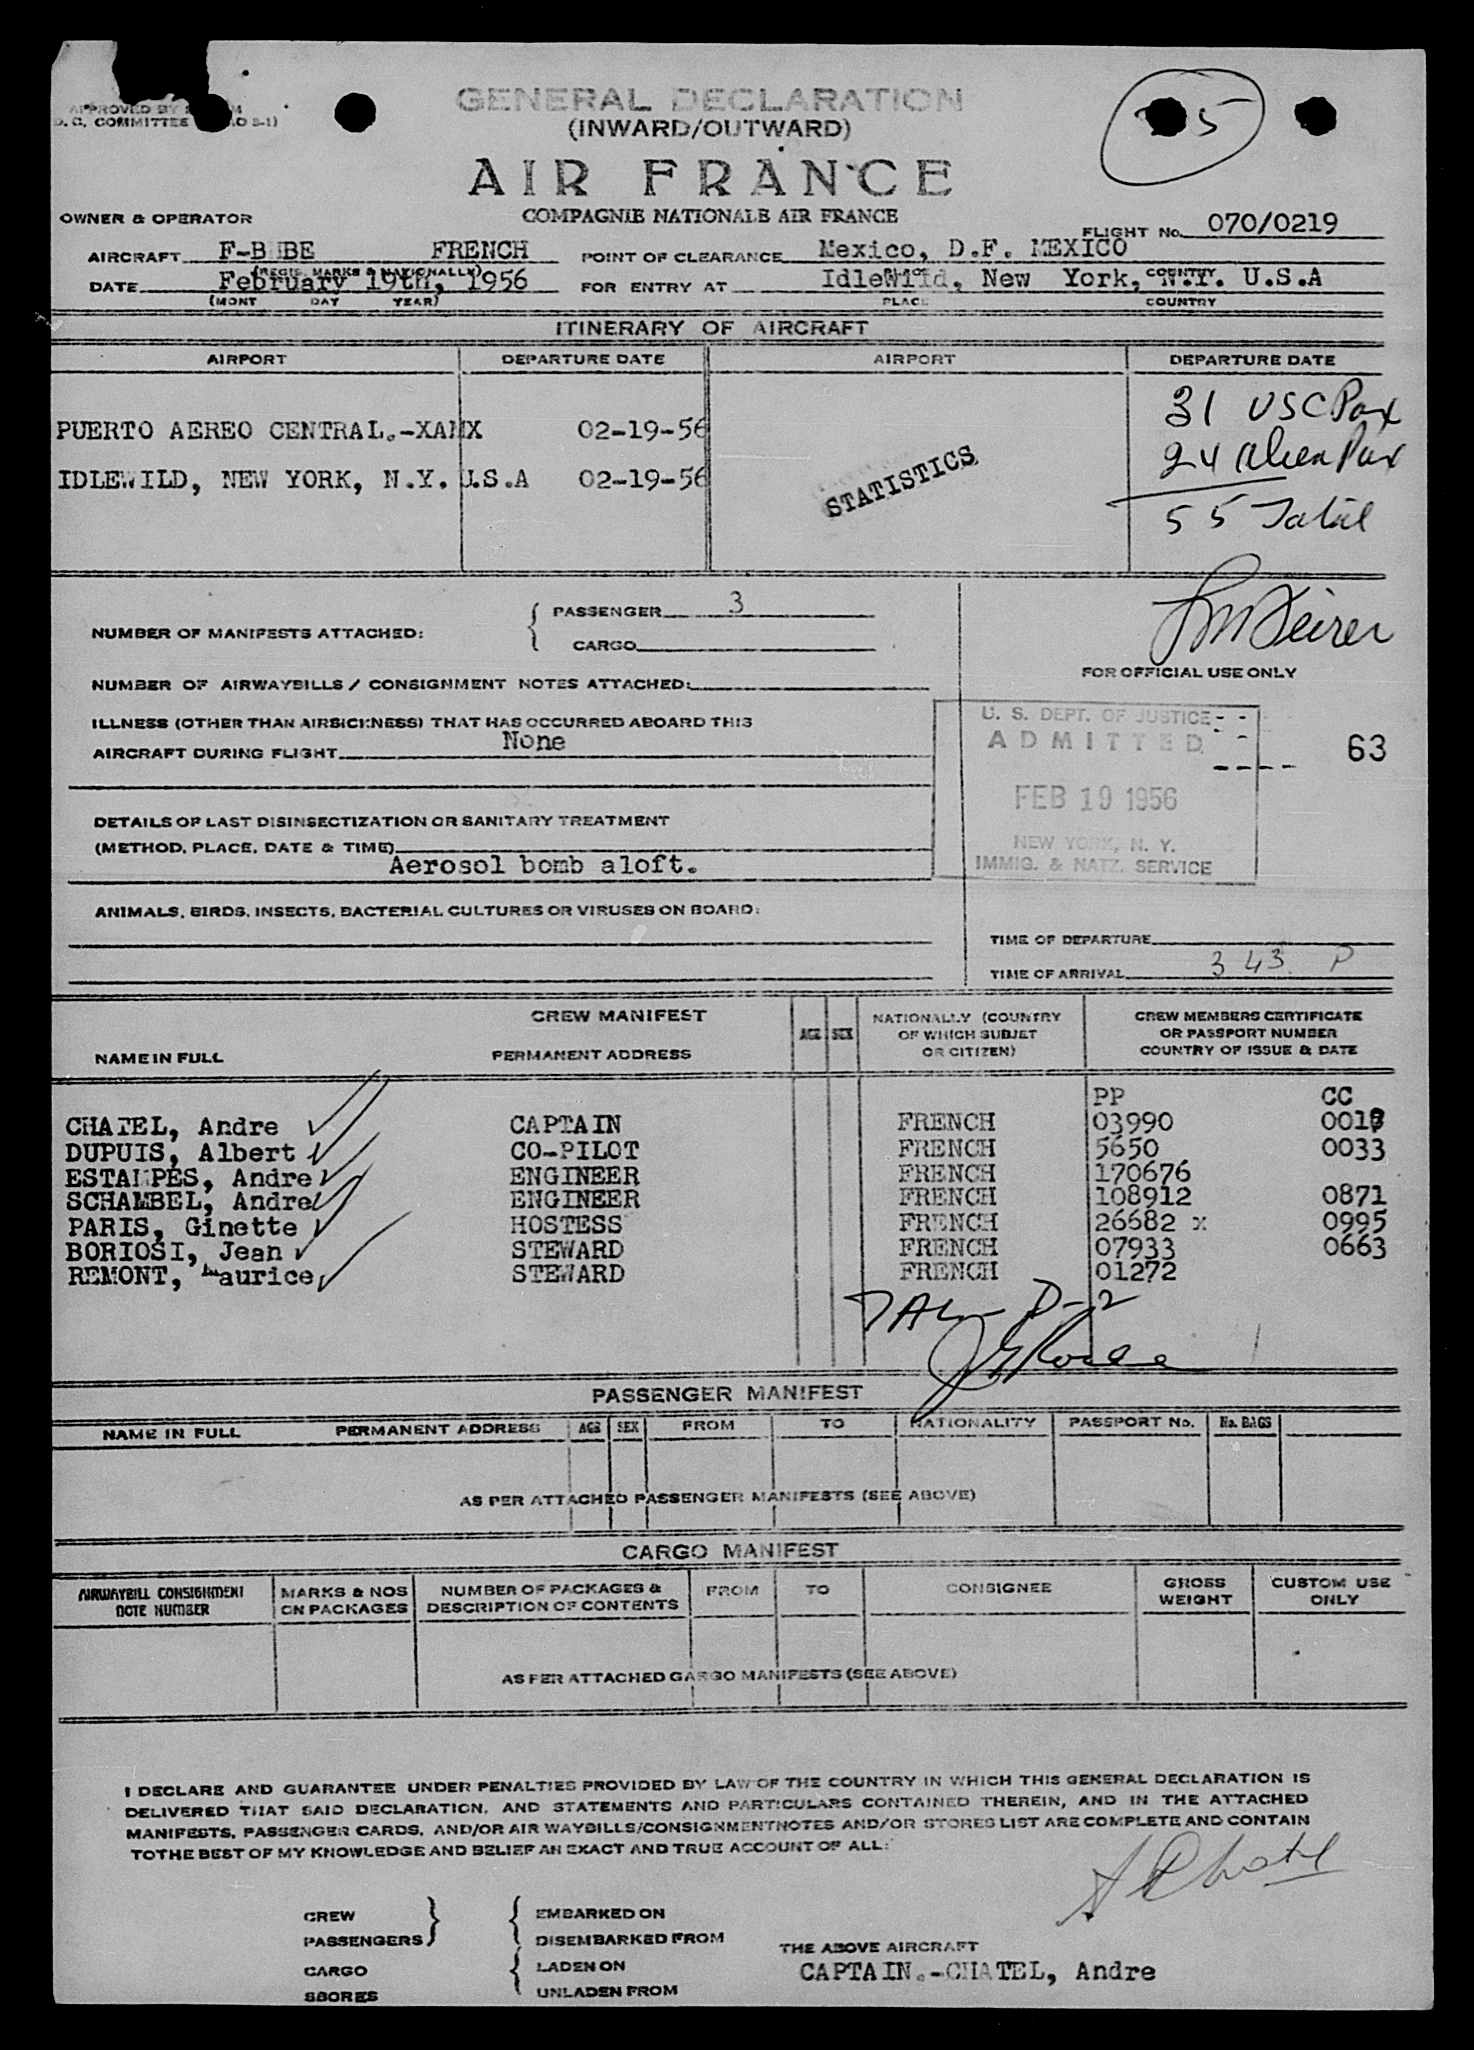 APPROVED BY
D. C. COMMITTEE
GENERAL DECLARATION
(INWARD/OUTWARD)
5
AIR FRANCE
COMPAGNIE NATIONALE AIR FRANCE
OWNER & OPERATOR
FLIGHT No. 070/0219
AIRCRAFT F-B BE FRENCH POINT OF CLEARANCE Mexico, D.F. MEXICO
(REGIS. MARKS & NATIONALLY) COUNTRY
DATE February 19th, 1956 FOR ENTRY AT Idlewild, New York, N.Y. U.S.A
(MONT DAY YEAR) PLACE COUNTRY
ITINERARY OF AIRCRAFT
AIRPORT DEPARTURE DATE AIRPORT DEPARTURE DATE
31 USC Pax
PUERTO AEREO CENTRAL.-XAMX 02-19-56
24 Alien Pax
IDLEWILD, NEW YORK, N.Y. U.S.A 02-19-56 STATISTICS
55 Total
NUMBER OF MANIFESTS ATTACHED: { PASSENGER 3
CARGO
FOR OFFICIAL USE ONLY
NUMBER OF AIRWAYBILLS / CONSIGNMENT NOTES ATTACHED:
ILLNESS (OTHER THAN AIRSICKNESS) THAT HAS OCCURRED ABOARD THIS
AIRCRAFT DURING FLIGHT None
U. S. DEPT. OF JUSTICE
ADMITTED
63
FEB 19 1956
NEW YORK, N. Y.
IMMIG. & NATZ. SERVICE
DETAILS OF LAST DISINSECTIZATION OR SANITARY TREATMENT
(METHOD, PLACE, DATE & TIME)
Aerosol bomb aloft.
ANIMALS, BIRDS, INSECTS, BACTERIAL CULTURES OR VIRUSES ON BOARD:
TIME OF DEPARTURE
TIME OF ARRIVAL 3 43 P
CREW MANIFEST
NAME IN FULL PERMANENT ADDRESS AGE SEX NATIONALLY (COUNTRY OF WHICH SUBJET OR CITIZEN) CREW MEMBERS CERTIFICATE OR PASSPORT NUMBER COUNTRY OF ISSUE & DATE
PP CC
CHATEL, Andre CAPTAIN FRENCH 03990
DUPUIS, Albert CO-PILOT FRENCH 5650 0033
ESTAMPES, Andre ENGINEER FRENCH 170676
SCHAMBEL, Andre ENGINEER FRENCH 108912 0871
PARIS, Ginette HOSTESS FRENCH 26682 x 0995
BORIOSI, Jean STEWARD FRENCH 07933 0663
REMONT, Maurice STEWARD FRENCH 01272
7 AL- D-2
PASSENGER MANIFEST
NAME IN FULL PERMANENT ADDRESS AGE SEX FROM TO NATIONALITY PASSPORT No. No. BAGS
AS PER ATTACHED PASSENGER MANIFESTS (SEE ABOVE)
CARGO MANIFEST
AIRWAYBILL CONSIGNMENT NOTE NUMBER MARKS & NOS ON PACKAGES NUMBER OF PACKAGES & DESCRIPTION OF CONTENTS FROM TO CONSIGNEE GROSS WEIGHT CUSTOM USE ONLY
AS PER ATTACHED CARGO MANIFESTS (SEE ABOVE)
I DECLARE AND GUARANTEE UNDER PENALTIES PROVIDED BY LAW OF THE COUNTRY IN WHICH THIS GENERAL DECLARATION IS
DELIVERED THAT SAID DECLARATION, AND STATEMENTS AND PARTICULARS CONTAINED THEREIN, AND IN THE ATTACHED
MANIFESTS, PASSENGER CARDS, AND/OR AIR WAYBILLS/CONSIGNMENTNOTES AND/OR STORES LIST ARE COMPLETE AND CONTAIN
TOTHE BEST OF MY KNOWLEDGE AND BELIEF AN EXACT AND TRUE ACCOUNT OF ALL:
A Chatel
CREW } { EMBARKED ON
PASSENGERS DISEMBARKED FROM
THE ABOVE AIRCRAFT
CARGO { LADEN ON
CAPTAIN.-CHATEL, Andre
SBORES UNLADEN FROM